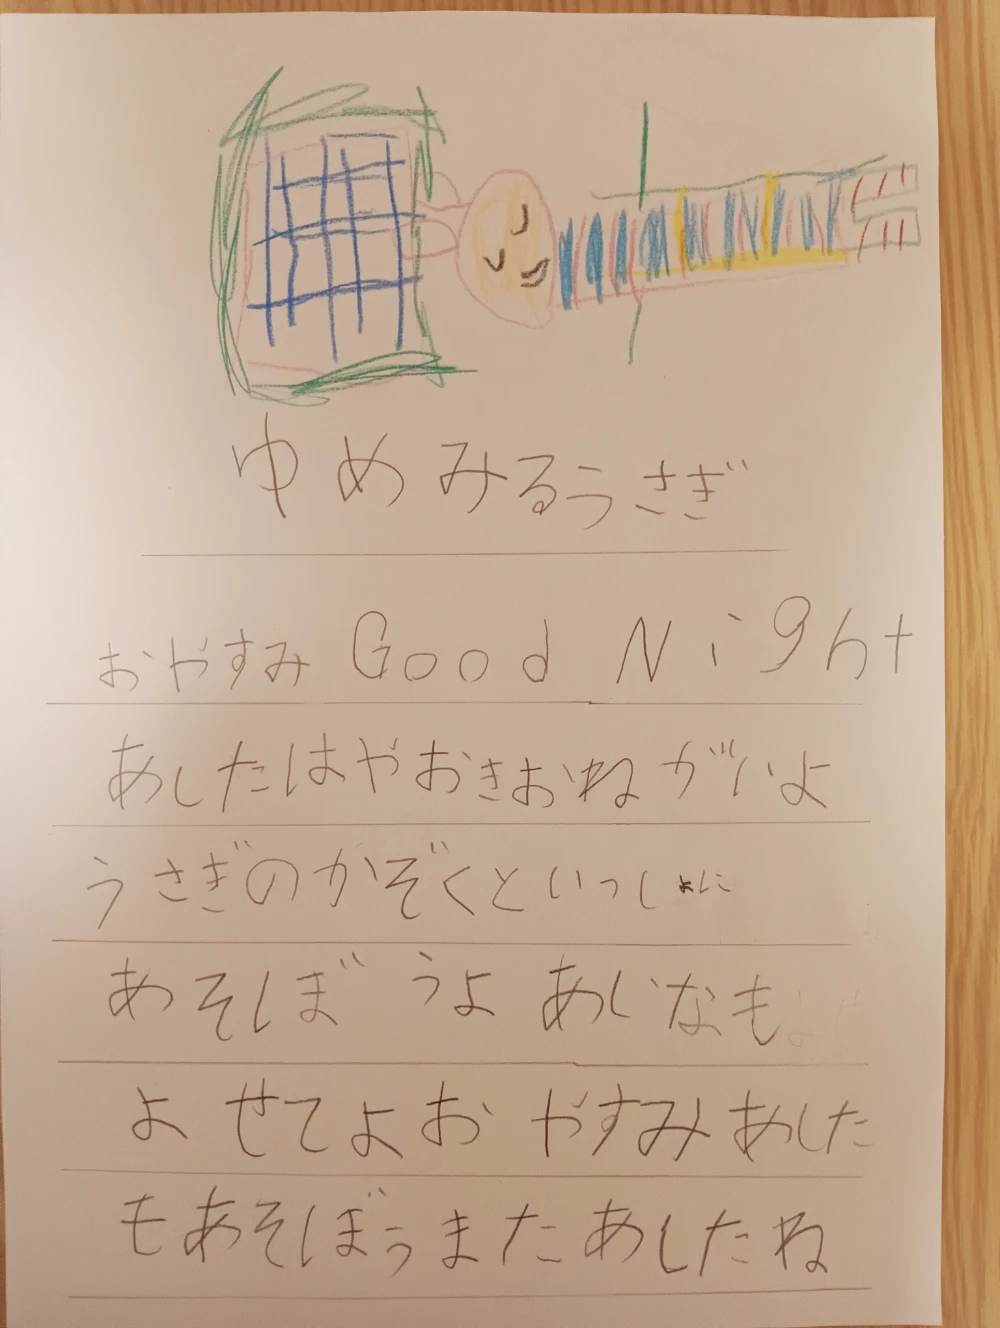 ゆめみるうさぎ
おやすみ Good Night
あしたはやおきおねがいよ
うさぎのかぞくといっしょに
あそぼうよ あいなも
よせてよおやすみあした
もあそぼうまたあしたね